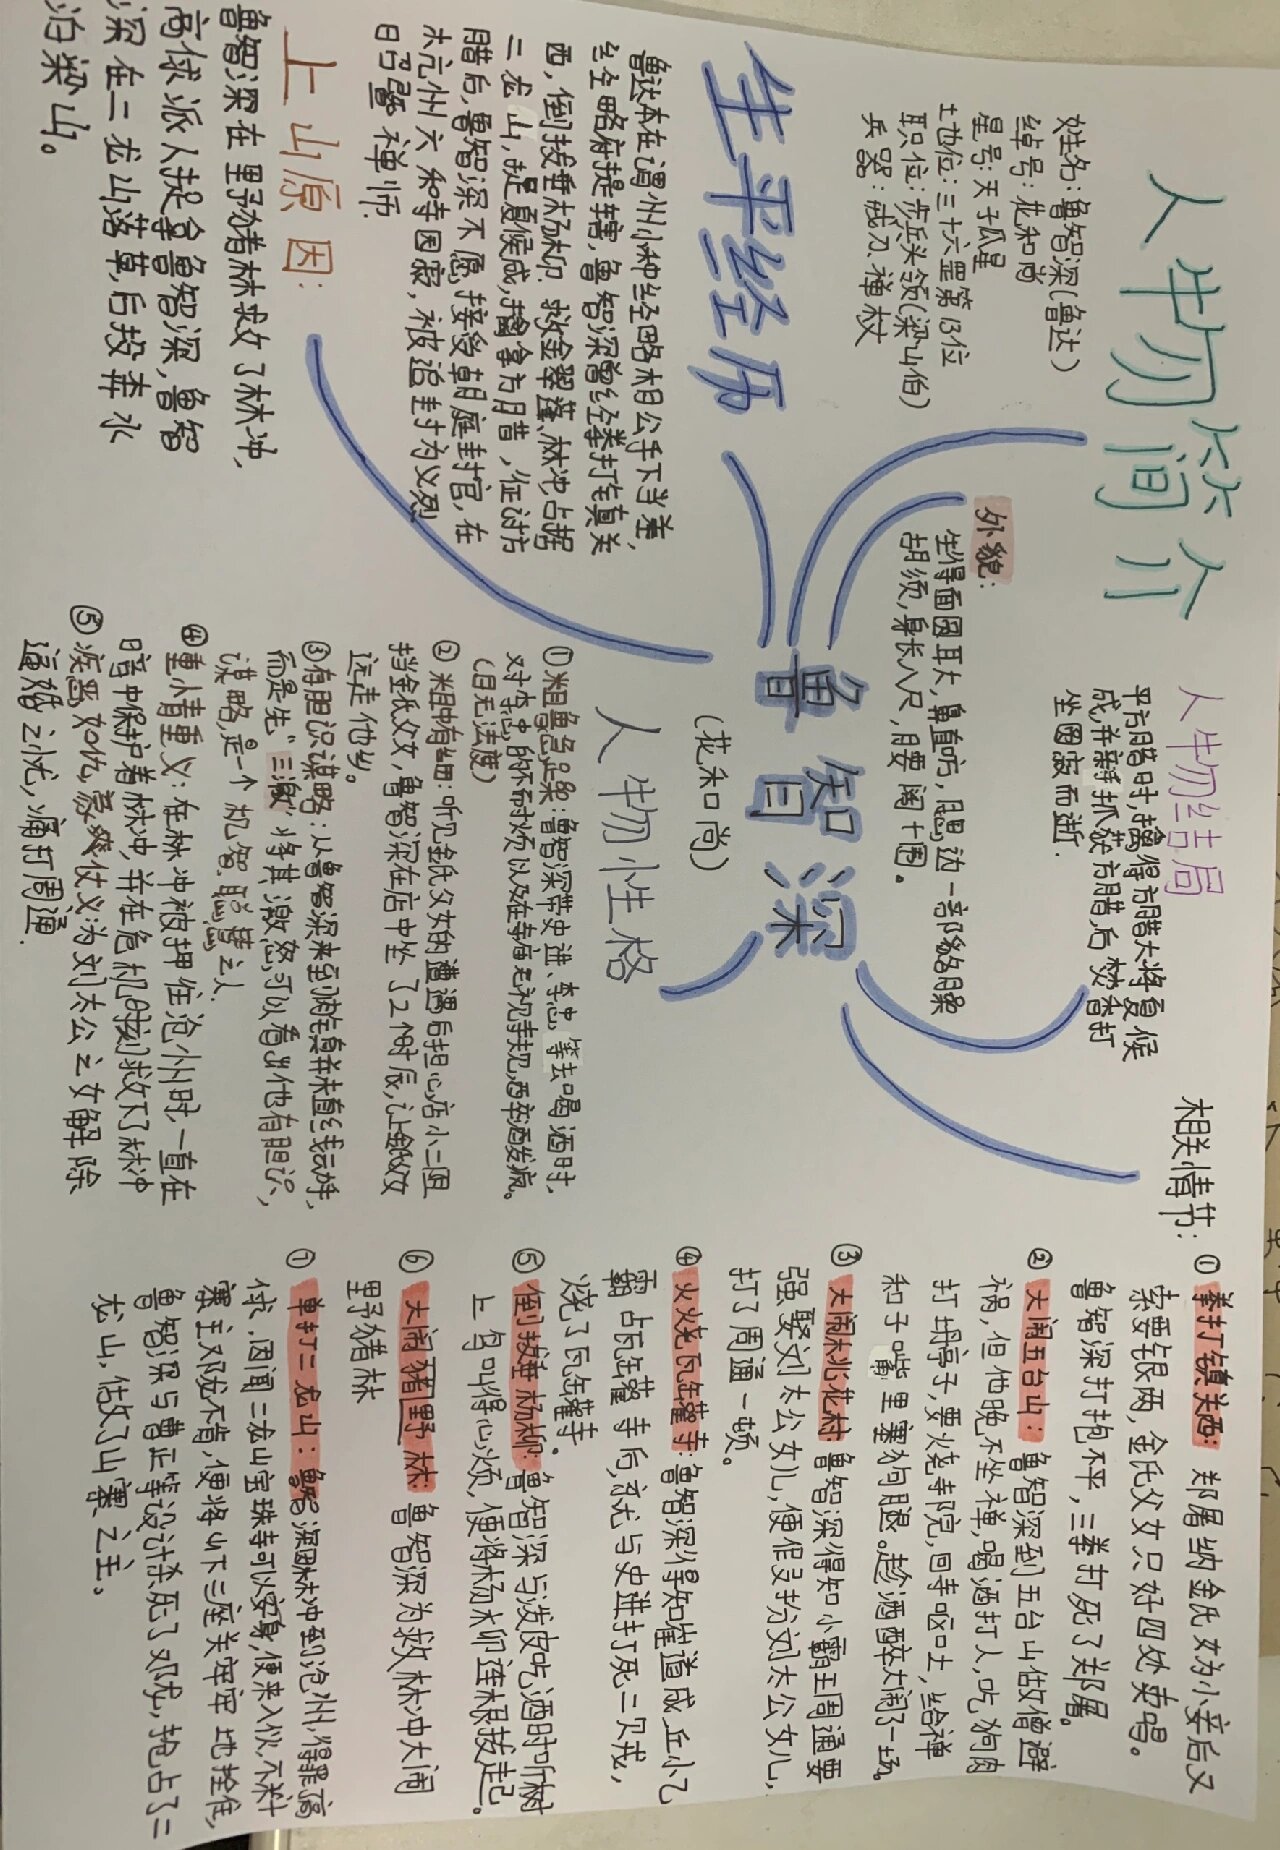 人物简介
姓名：鲁智深(鲁达)
绰号：花和尚
星号：天孤星
地位：三十六罡第13位
职位：步兵头领(梁山伯)
兵器：戒刀、禅杖
外貌：
生得面圆耳大，鼻直口方，腮边一部貉𦝼
胡须，身长八尺，腰阔十围。
人物结局
平方腊时，擒得方腊大将夏候
成，并亲手抓获方腊，后焚香打
坐圆寂而逝.
相关情节：
① 拳打镇关西： 郑屠纳金氏女为小妾后又
索要银两，金氏父女只好四处卖唱。
鲁智深打抱不平，三拳打死了郑屠。
② 大闹五台山： 鲁智深到五台山做僧避
祸，但他晚不坐禅，喝酒打人，吃狗肉
打塌亭子，要火烧寺院，回寺呕吐，给禅
和子嘴里塞狗腿。趁酒醉大闹了一场。
③ 大闹桃花村：鲁智深得知小霸王周通要
强娶刘太公女儿，便假扮刘太公女儿，
打了周通一顿。
④ 火烧瓦罐寺：鲁智深得知崔道成丘小乙
霸占瓦罐寺后，就与史进打死二贼，
烧了瓦罐寺。
⑤ 倒拔垂杨柳：鲁智深与泼皮吃酒时听树
上鸟叫得心烦，便将杨柳连根拔起。
⑥ 大闹猪野林：鲁智深为救林冲大闹
野猪林
⑦ 单打二龙山：鲁智深因林冲到沧州，得罪高
俅，因闻二龙山宝珠寺可以安身，便来入伙，不料
寨主邓龙不肯，便将山下三座关牢牢地拴住，
鲁智深与曹正等设计杀死了邓龙，抢占了二
龙山，做了山寨之主。
生平经历
鲁达本在渭州小种经略相公手下当差，
经略府提辖，鲁智深曾经拳打镇关
西，倒拔垂杨柳. 救金翠莲、林冲，占据
二龙山，捉夏候成，擒拿方腊，征讨方
腊后，鲁智深不愿接受朝庭封官，在
杭州六和寺圆寂，被追封为义烈
昭暨禅师.
鲁智深
(花和尚)
人物性格
①粗鲁急躁：鲁智深带史进、李忠等去喝酒时，
对李忠的不耐烦以及在寺庙无视寺规，两卒酒发疯。
(目无法度)
②粗中有细：听见金氏父女的遭遇后担心店小二阻
挡金氏父女，鲁智深在店中坐了2个时辰，让金氏父女
远走他乡。
③有胆识谋略：从鲁智深来到肉铺真并未直线动手，
而是先“三激”将其激怒，可以看出他有胆识，
谋略，是一个机智聪慧之人.
④重情重义：在林冲被押往沧州时，一直在
暗中保护着林冲，并在危机时刻救下了林冲
⑤疾恶如仇，豪爽仗义：为刘太公之女解除
逼婚之忧，痛打周通.
上山原因：
鲁智深在野猪林救了林冲，
高俅派人捉拿鲁智深，鲁智
深在二龙山落草，后投奔水
泊梁山。